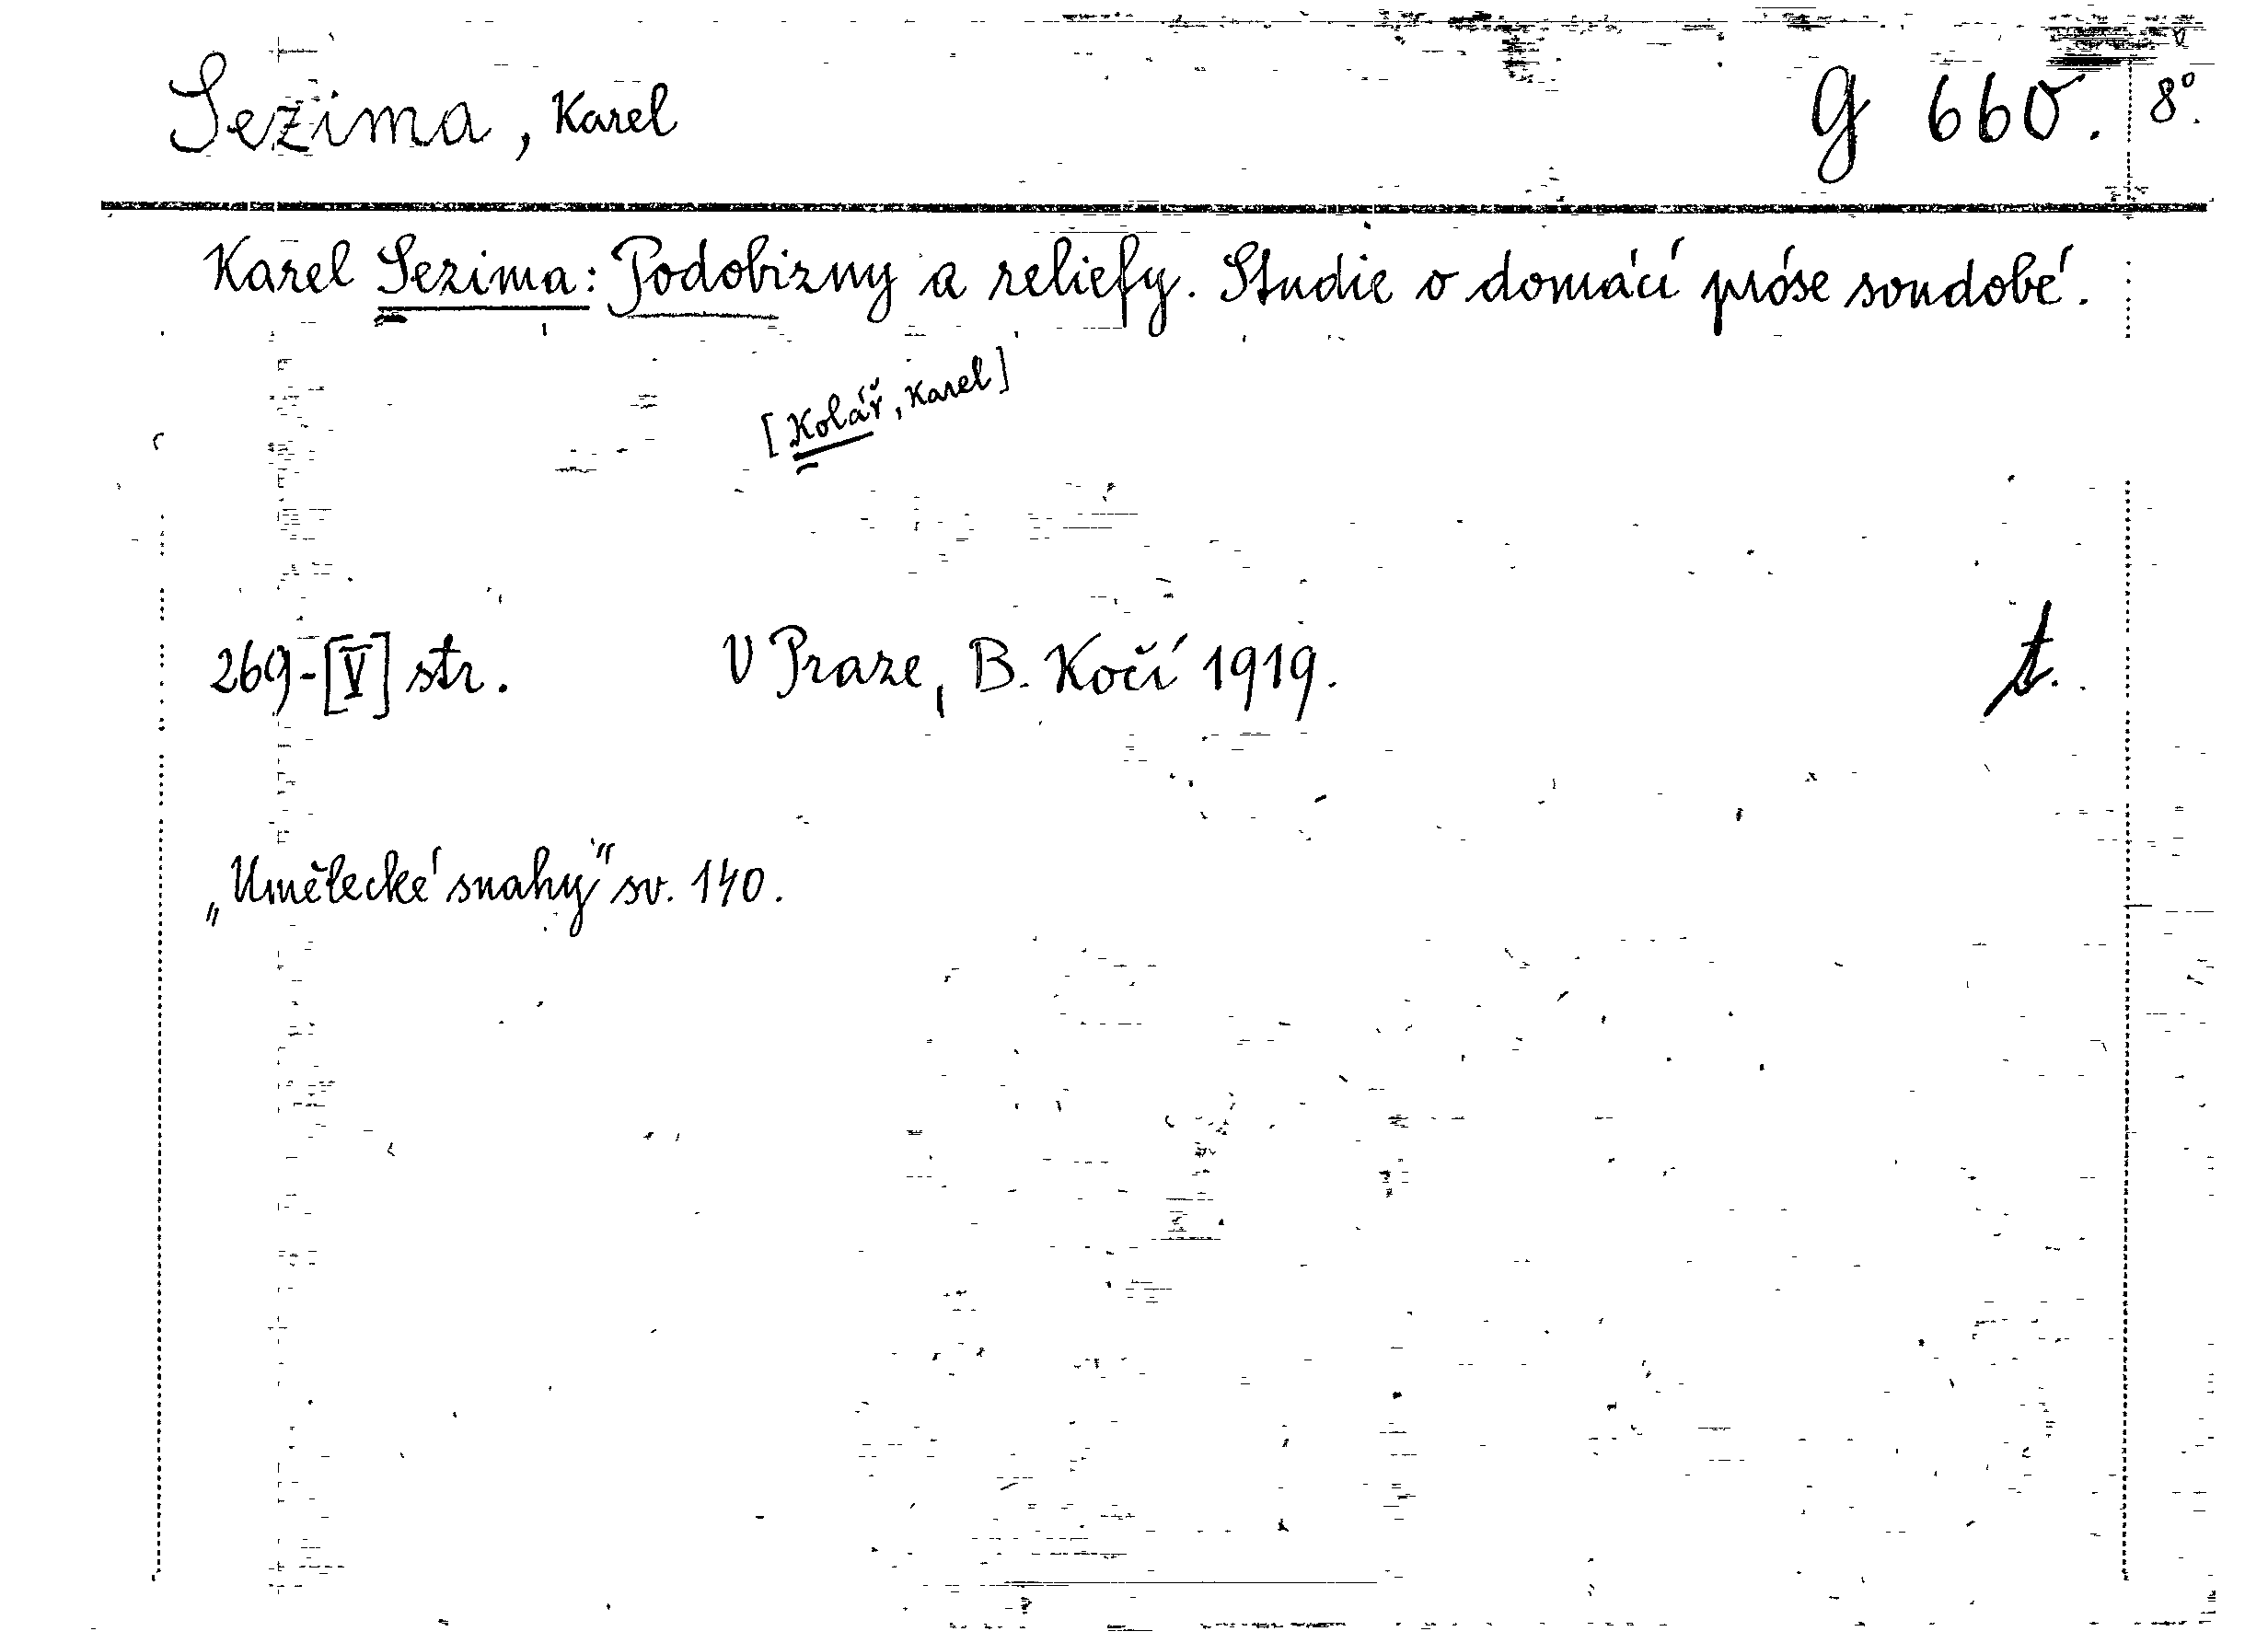 Sezima, Karel G 660. 8°.
Karel Sezima: Podobizny a reliefy. Studie o domácí próse soudobé.
[Kolář, Karel]
269-[V] str. V Praze, B. Kočí 1919. t.
„Umělecké snahy" sv. 140.